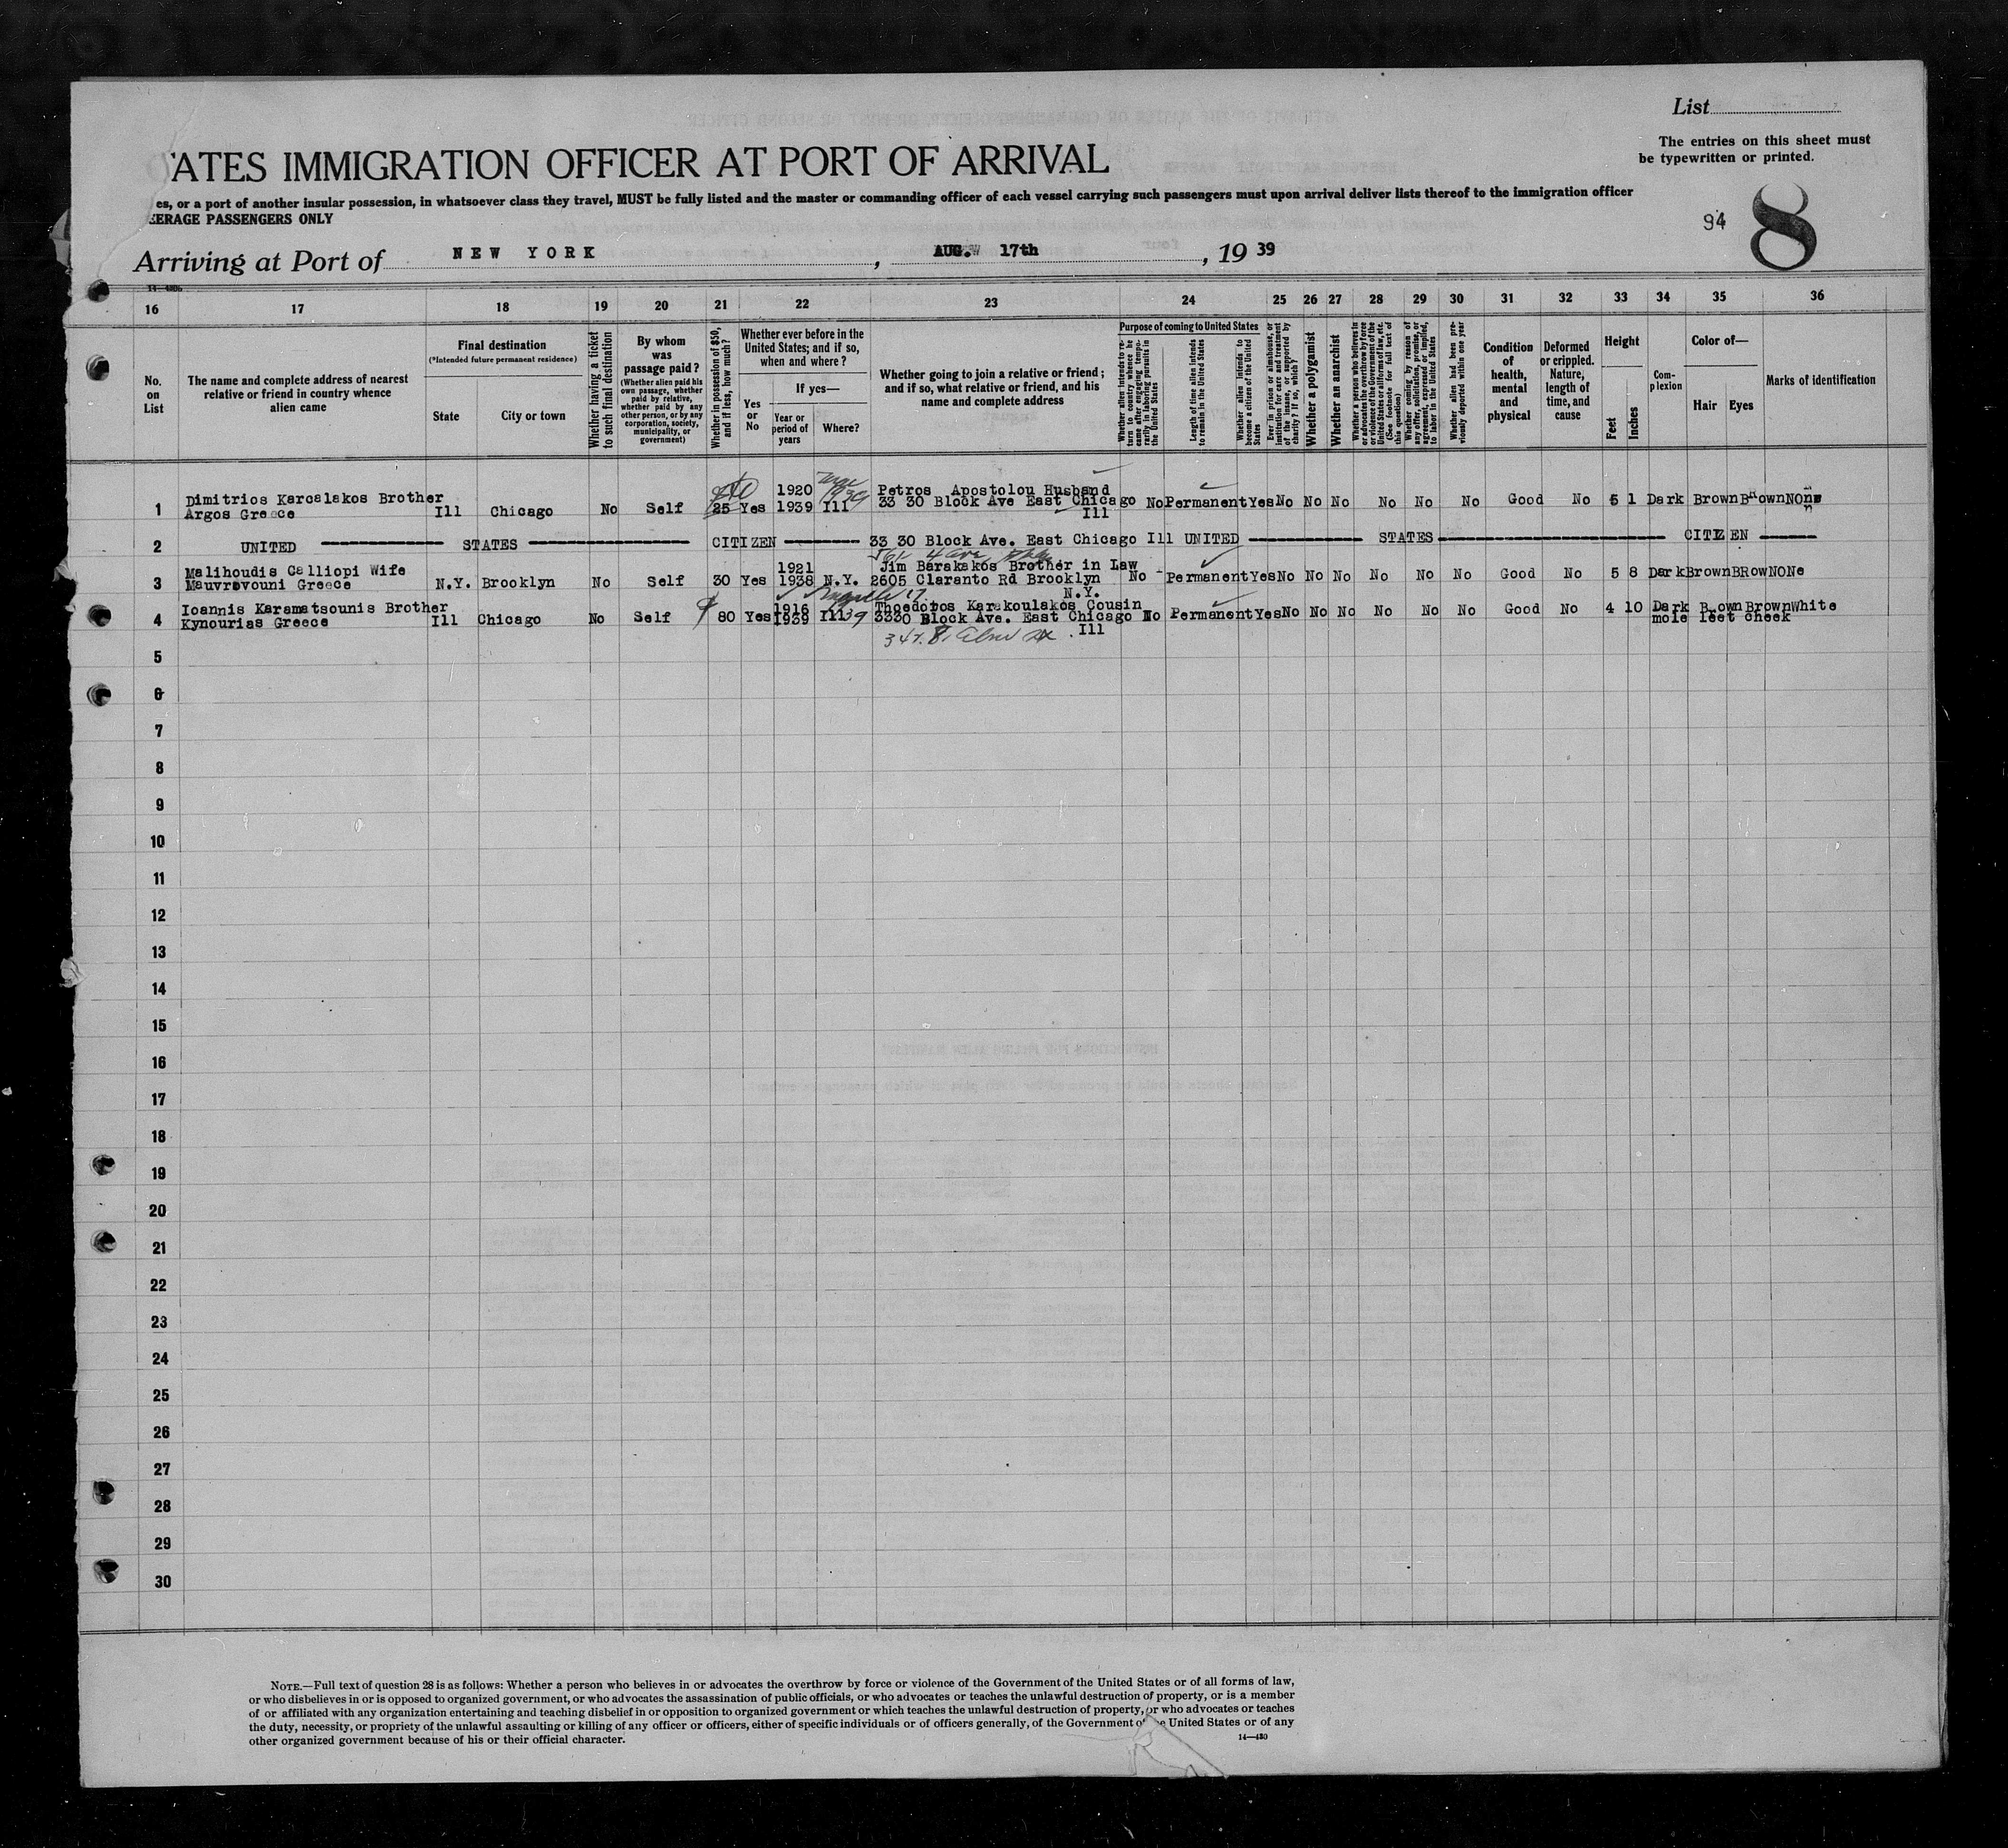 List
The entries on this sheet must
be typewritten or printed.
ATES IMMIGRATION OFFICER AT PORT OF ARRIVAL
es, or a port of another insular possession, in whatsoever class they travel, MUST be fully listed and the master or commanding officer of each vessel carrying such passengers must upon arrival deliver lists thereof to the immigration officer
ERAGE PASSENGERS ONLY
94 8
Arriving at Port of NEW YORK, AUG. 17th, 19 39
16 17 18 19 20 21 22 23 24 25 26 27 28 29 30 31 32 33 34 35 36
No. on List
The name and complete address of nearest relative or friend in country whence alien came
Final destination
(*Intended future permanent residence)
State
City or town
Whether having a ticket to such final destination
By whom was passage paid?
(Whether alien paid his own passage, whether paid by relative, whether paid by any other person, or by any corporation, society, municipality, or government)
Whether in possession of $50, and if less, how much?
Whether ever before in the United States; and if so, when and where?
Yes or No
If yes—
Year or period of years
Where?
Whether going to join a relative or friend; and if so, what relative or friend, and his name and complete address
Purpose of coming to United States
Whether alien intends to return to country whence he came after engaging temporarily in laboring pursuits in the United States
Length of time alien intends to remain in the United States
Whether alien intends to become a citizen of the United States
Ever in prison or almshouse, or institution for care and treatment of the insane, or supported by charity? If so, which?
Whether a polygamist
Whether an anarchist
Whether a person who believes in or advocates the overthrow by force or violence of the Government of the United States or all forms of law, etc. (See footnote for full text of this question)
Whether coming by reason of any offer, solicitation, promise, or agreement, expressed or implied, to labor in the United States
Whether alien had been previously deported within one year
Condition of health, mental and physical
Deformed or crippled. Nature, length of time, and cause
Height
Feet
Inches
Complexion
Color of—
Hair
Eyes
Marks of identification
1 Dimitrios Karcalakos Brother
Argos Greece Ill Chicago No Self 25 Yes 1920 1939 Ill Petros Apostolou Husband
33 30 Block Ave East Chicago Ill No Permanent Yes No No No No No No Good No 5 1 Dark Brown Brown NOne
2 UNITED STATES CITIZEN 33 30 Block Ave. East Chicago Ill UNITED STATES CITIZEN
3 Malihoudis Calliopi Wife
Mauvrovouni Greece N.Y. Brooklyn No Self 30 Yes 1921 1938 N.Y. Jim Barakakos Brother in Law
2605 Claranto Rd Brooklyn N.Y. No Permanent Yes No No No No No No Good No 5 8 Dark Brown BRow NONe
4 Ioannis Karamatsounis Brother
Kynourias Greece Ill Chicago No Self 80 Yes 1916 1939 Ill 39 Thoedoros Karakoulakos Cousin
3330 Block Ave. East Chicago Ill No Permanent Yes No No No No No No Good No 4 10 Dark Brown Brown White
mole leet cheek
5
6
7
8
9
10
11
12
13
14
15
16
17
18
19
20
21
22
23
24
25
26
27
28
29
30
NOTE.—Full text of question 28 is as follows: Whether a person who believes in or advocates the overthrow by force or violence of the Government of the United States or of all forms of law,
or who disbelieves in or is opposed to organized government, or who advocates the assassination of public officials, or who advocates or teaches the unlawful destruction of property, or is a member
of or affiliated with any organization entertaining and teaching disbelief in or opposition to organized government or which teaches the unlawful destruction of property, or who advocates or teaches
the duty, necessity, or propriety of the unlawful assaulting or killing of any officer or officers, either of specific individuals or of officers generally, of the Government of the United States or of any
other organized government because of his or their official character.
14—430